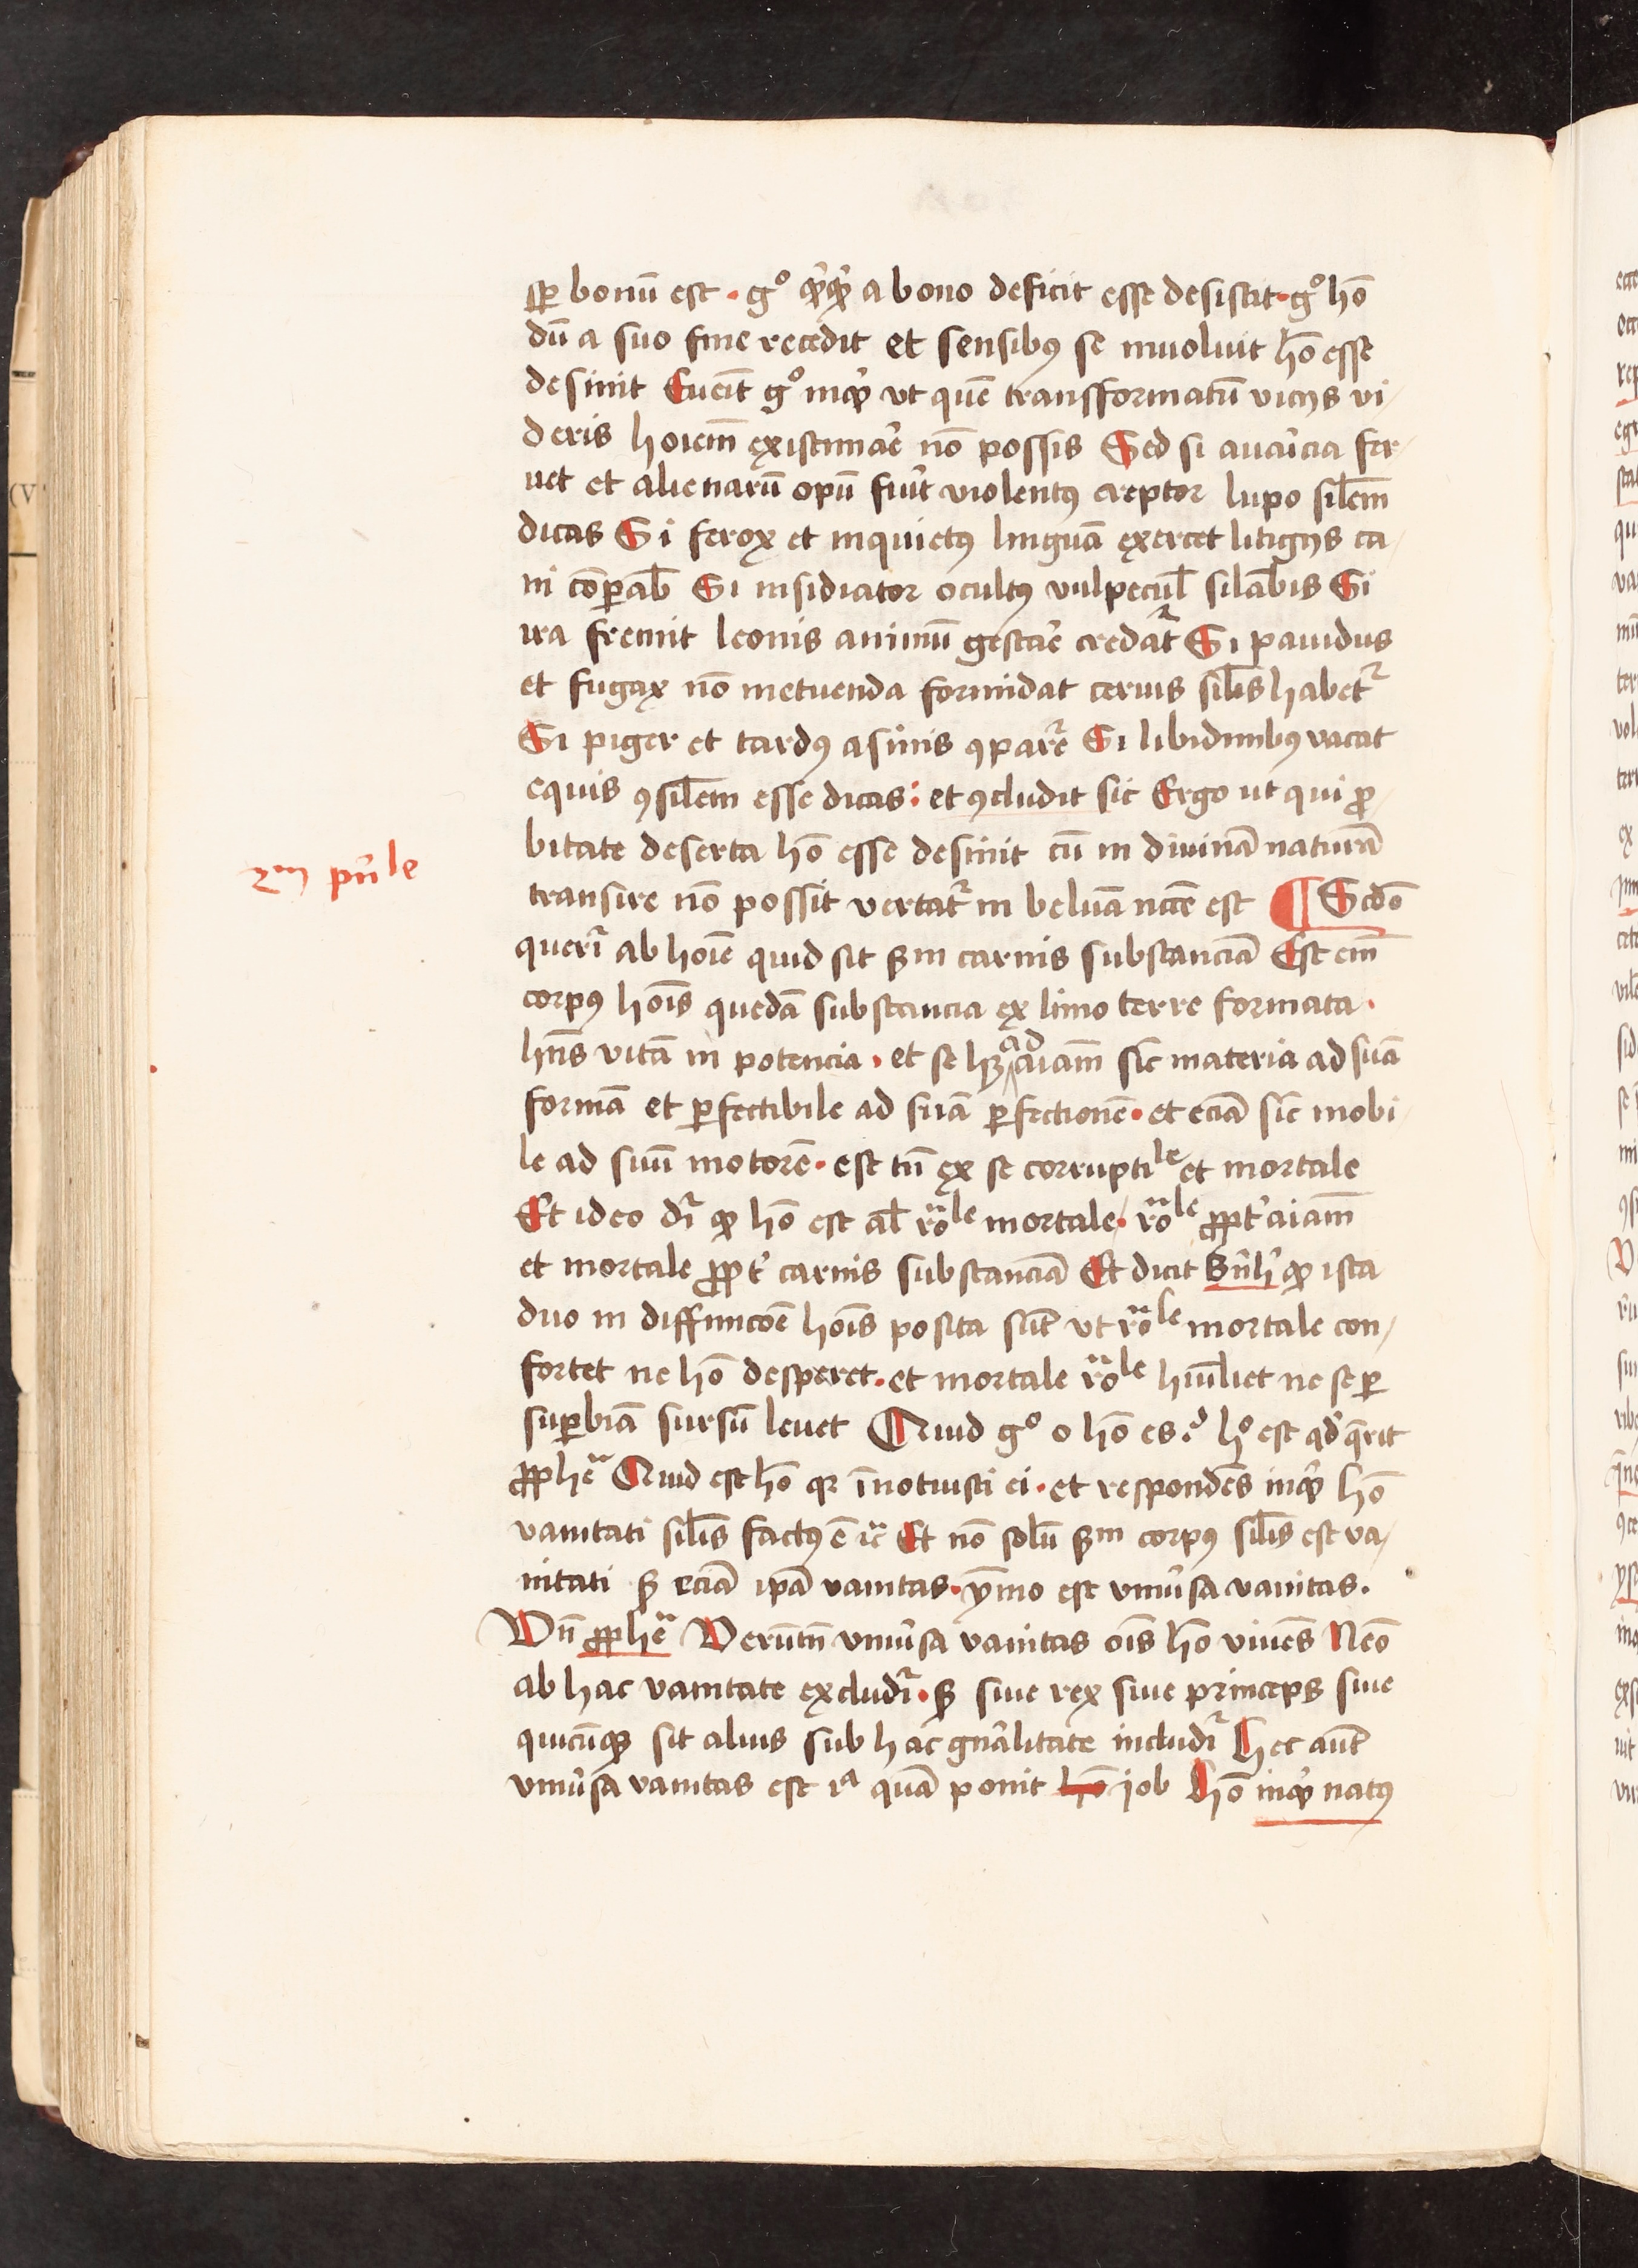 sp̱ bonū est · gͦ qͥqͥd a bono deficit esse desistit · gͦ hō
dū a suo fine recedit et sensibꝰ se inuoluit hō esse
desinit Euēīt gͦ inqͥt vt quē transformatū vicijs vi/
deris hoīem existimar̄e nō possis Sed si auar̄icia fer/
uet et alienarū opū fuīt violentꝰ ereptor lupo sil̄em
dicas Si ferox et inquietꝰ linguā exercet litigijs ca/
ni cōꝑab̄ Si insidiator ocultꝰ vulpecul̄ sil̄abis Si
ira fremit leonis animū gestar̄e credatᷣ Si pauidus
et fugax nō metuenda formidat ceruis sil̄is habetᷣ
Si piger et tardꝰ asinis ꝯparet̄ Si libidinibꝰ vacat
equis ꝯsil̄em esse dicas : et ꝯcludit sic Ergo ut qui ꝓ/
bitate deserta hō esse desinit cū in diuinā naturā
transire nō possit vertatᷣ in beluā nc̄ce est ¶ Sc̄do
querit̄ ab hoīe quid sit ẜm carnis substanciā Est em̄
corpꝰ hoīs quedā substancia ex limo terre formata ·
hn̄s vitā in potencia · et se hꝫ ad aīam sic̄ materia ad suā
formā et ꝑfectibile ad suā ꝑfectionē · et eciā sic̄ mobi/
le ad suū motorē · est tn̄ ex se corruptiˡᵉ et mortale
Et ideo dr̄ ꝙ hō est al̄ rōˡᵉ mortale · rōˡᵉ ꝓpt̄ aīam
et mortale ꝓpt̄ carnis substanciā Et dicit Bn̄h' ꝙ ista
duo in diffinicōe hoīs posita sūt vt rōˡᵉ mortale con/
fortet ne hō desperet · et mortale rōˡᵉ hūīliet ne se ꝑ
suꝑbiā sursū leuet Quid gͦ o hō es ? hͦ est qd̄ q̄rit
ꝓphēᵃ Quid est hō qꝛ īnotuisti ei · et respondēs inqͥt hō
vanitati sil̄is factꝰ ē ⁊c̄ Et nō solū ẜm corpꝰ sil̄is est va/
nitati ẜ eciā ip̄a vanitas · ym̄o est vniūsa vanitas .
Vn̄ ꝓphēᵃ Verūtn̄ vniūsa vanitas oīs hō viuēs Nēo
ab hac vanitate excludit̄ · ẜ siue rex siue princeps siue
quicūqꝫ sit alius sub hac gn̄alitate includit̄ Hec aūt
vniūsa vanitas est iᵃ quā ponit hō job Hō inqͥt natꝰ
2ᵐ pn̄ˡᵉ